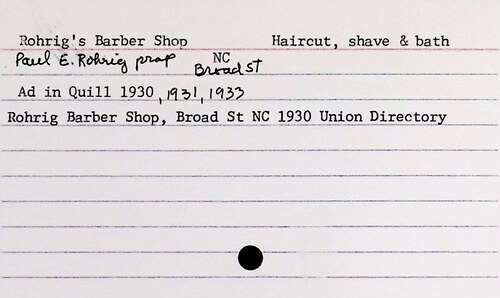 Rohrig's Barber Shop Haircut, shave & bath
Paul E. Rohrig prop NC
Broad St
Ad in Quill 1930, 1931, 1933
Rohrig Barber Shop, Broad St NC 1930 Union Directory